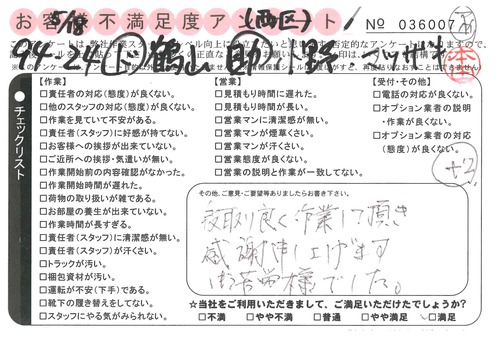 5/18
(西区)
お客様不満足度アンケート
No 036007
94-24
チェックリスト
【作業】
□責任者の対応(態度)が良くない。
□他のスタッフの対応(態度)が良くない。
□作業を見ていて不安がある。
□責任者(スタッフ)に好感が持てない。
□お客様への挨拶が出来ていない。
□ご近所への挨拶・気遣いが無い。
□作業開始前の内容確認がなかった。
□作業開始時間が遅れた。
□荷物の取り扱いが雑である。
□お部屋の養生が出来ていない。
□作業時間が長すぎる。
□責任者(スタッフ)に清潔感が無い。
□責任者(スタッフ)が汗くさい。
□トラックが汚い。
□梱包資材が汚い。
□運転が不安(下手)である。
□靴下の履き替えをしてない。
□スタッフにやる気がみられない。
【営業】
□見積もり時間に遅れた。
□見積もり時間が長い。
□営業マンに清潔感が無い。
□営業マンが煙草くさい。
□営業マンが汗くさい。
□営業態度が良くない。
□営業の説明と作業が一致してない。
【受付・その他】
□電話の対応が良くない。
□オプション業者の説明
・作業が良くない。
□オプション業者の対応
(態度)が良くない。
+2
その他、ご意見・ご要望等ありましたらお書き下さい。
段取り良く作業して頂き
感謝申し上げます
ご苦労様でした。
☆当社をご利用いただきまして、ご満足いただけたでしょうか？
□不満 □やや不満 □普通 □やや満足 □満足